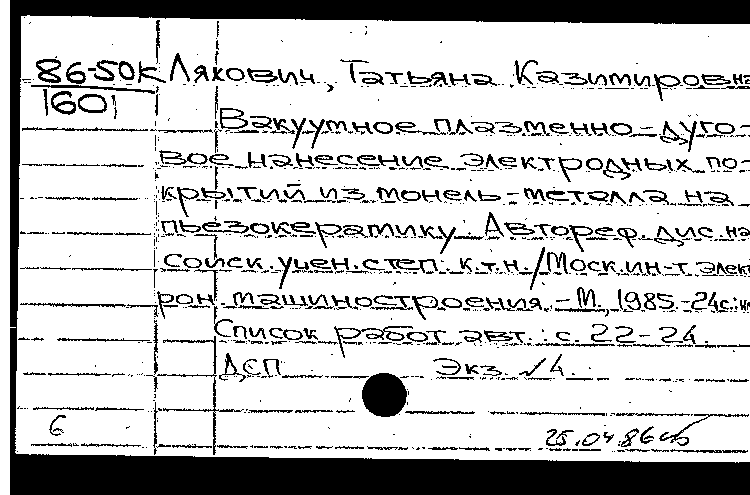 86-50к Лякович, Татьяна Казимировна
1601
Вакуумное плазменно-дуго-
вое нанесение электродных по-
крытий из монель-металла на
пьезокерамику: Автореф. дис. на
соиск. учен. степ. к.т.н. / Моск. ин-т элект
рон. машиностроения. - М., 1985. - 24с.:
Список работ авт.: с. 22-24.
ДСП Экз. №4.
6 25.04.86